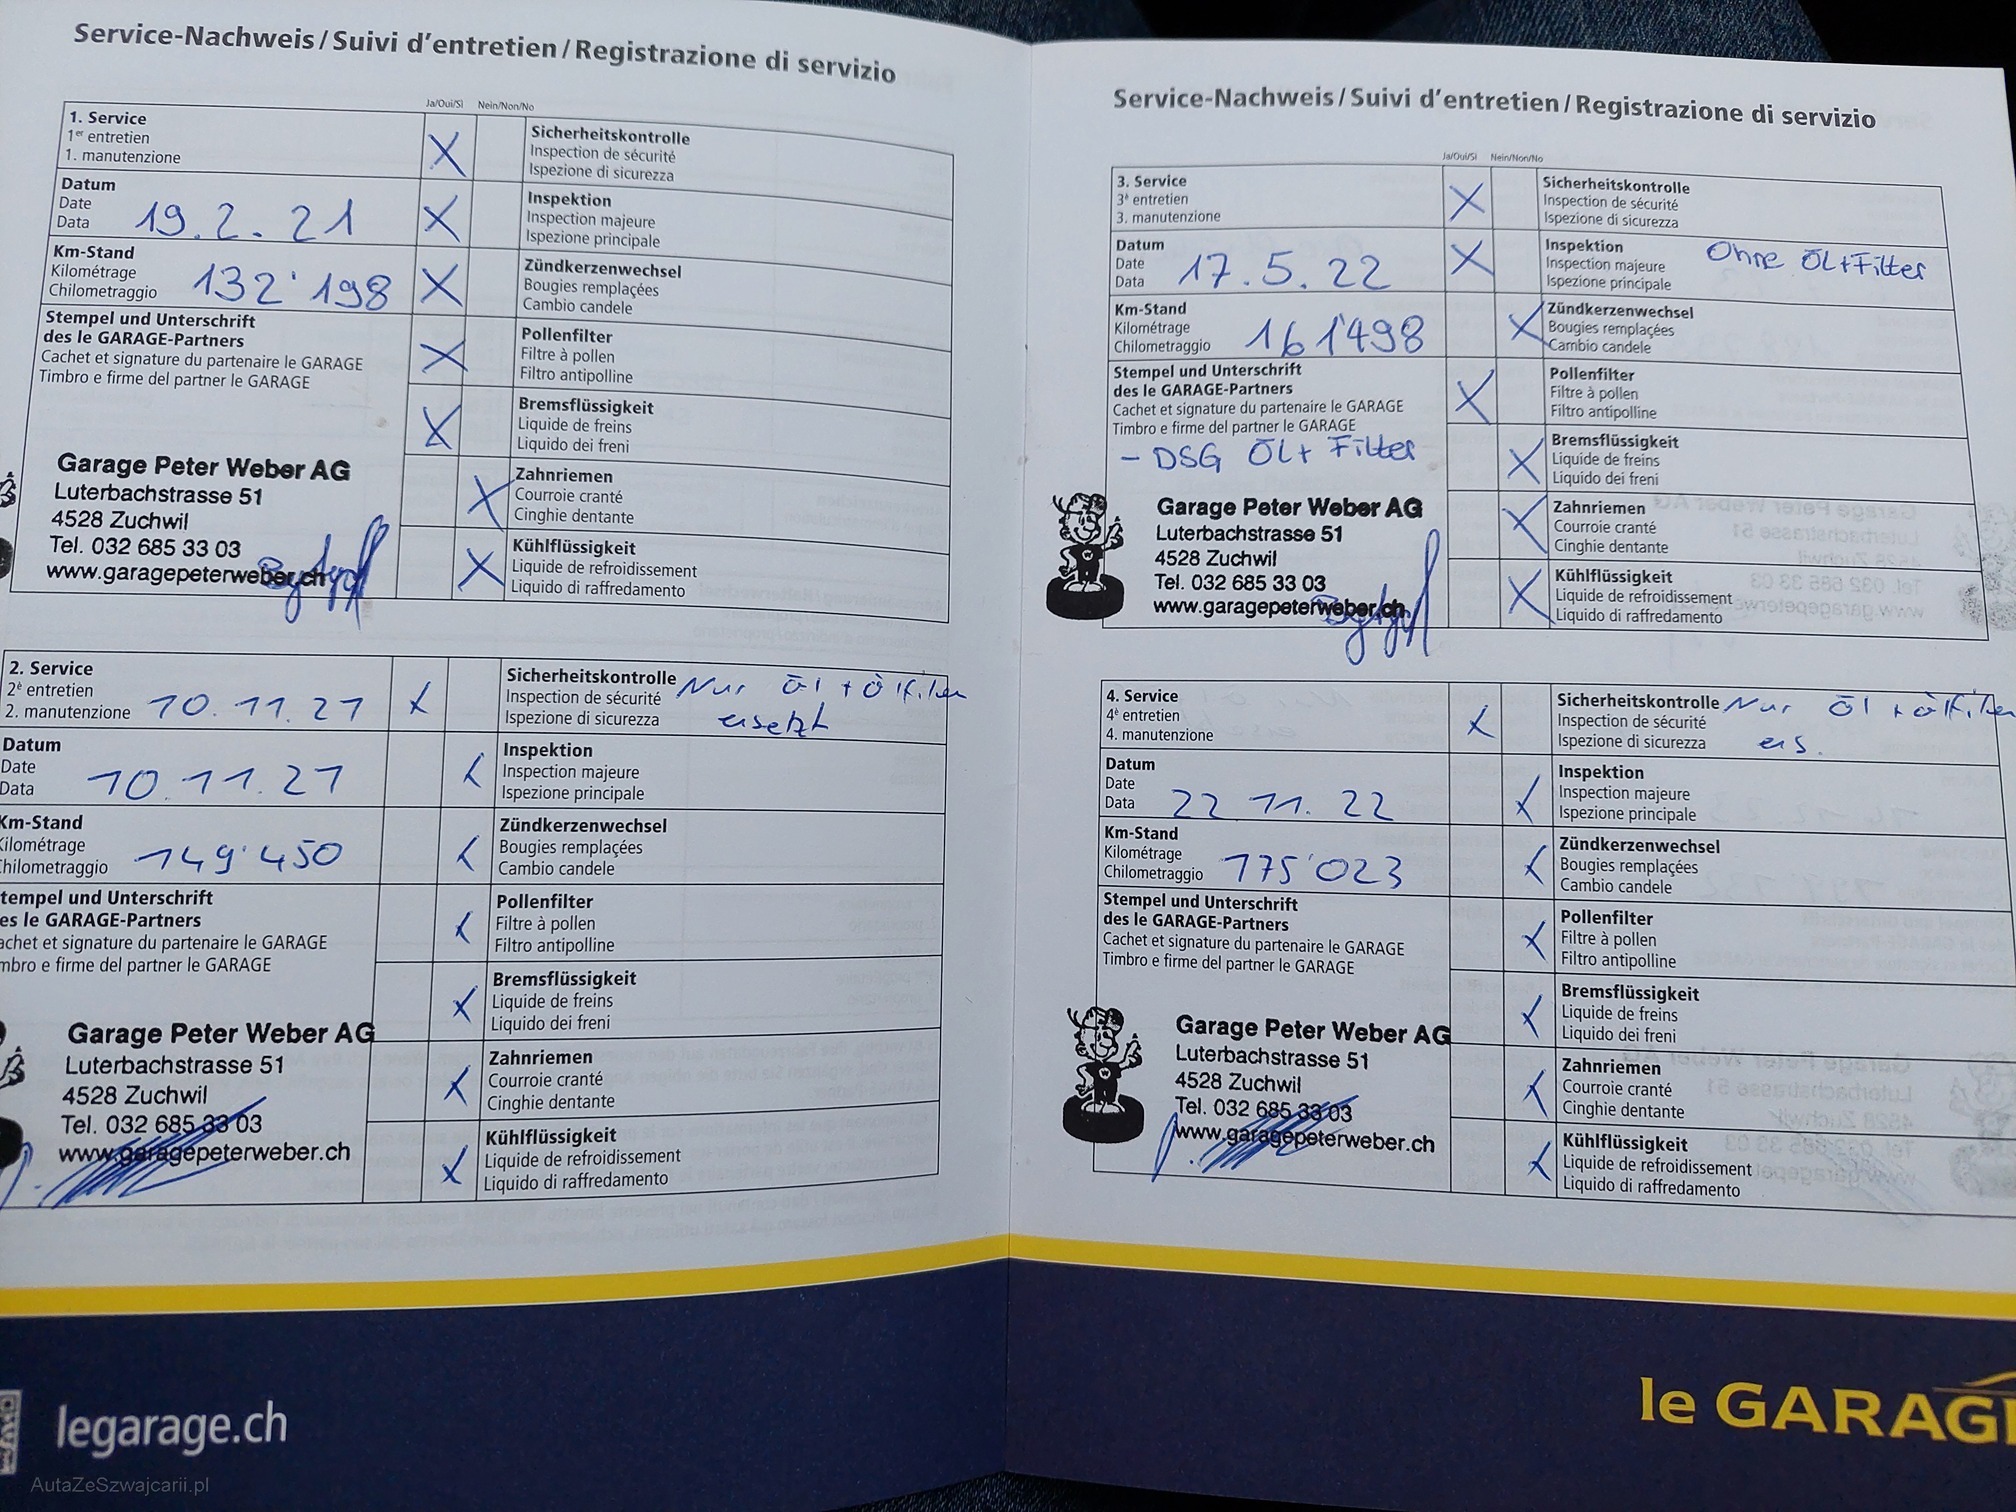 Service-Nachweis / Suivi d'entretien / Registrazione di servizio
Ja/Oui/Sì Nein/Non/No
1. Service
1er entretien
1. manutenzione
Datum
Date
Data
19.2.21
Km-Stand
Kilométrage
Chilometraggio
132'198
Stempel und Unterschrift
des le GARAGE-Partners
Cachet et signature du partenaire le GARAGE
Timbro e firme del partner le GARAGE
Garage Peter Weber AG
Luterbachstrasse 51
4528 Zuchwil
Tel. 032 685 33 03
www.garagepeterweber.ch
X Sicherheitskontrolle
Inspection de sécurité
Ispezione di sicurezza
X Inspektion
Inspection majeure
Ispezione principale
X Zündkerzenwechsel
Bougies remplaçées
Cambio candele
X Pollenfilter
Filtre à pollen
Filtro antipolline
X Bremsflüssigkeit
Liquide de freins
Liquido dei freni
X Zahnriemen
Courroie cranté
Cinghie dentante
X Kühlflüssigkeit
Liquide de refroidissement
Liquido di raffredamento
2. Service
2è entretien
2. manutenzione
10.11.21
Datum
Date
Data
10.11.21
Km-Stand
Kilométrage
Chilometraggio
149'450
Stempel und Unterschrift
es le GARAGE-Partners
achet et signature du partenaire le GARAGE
mbro e firme del partner le GARAGE
Garage Peter Weber AG
Luterbachstrasse 51
4528 Zuchwil
Tel. 032 685 33 03
www.garagepeterweber.ch
X Sicherheitskontrolle
Inspection de sécurité
Ispezione di sicurezza
Nur Öl + Ölfilter
ersetzt
X Inspektion
Inspection majeure
Ispezione principale
X Zündkerzenwechsel
Bougies remplaçées
Cambio candele
X Pollenfilter
Filtre à pollen
Filtro antipolline
X Bremsflüssigkeit
Liquide de freins
Liquido dei freni
X Zahnriemen
Courroie cranté
Cinghie dentante
X Kühlflüssigkeit
Liquide de refroidissement
Liquido di raffredamento
legarage.ch
Service-Nachweis / Suivi d'entretien / Registrazione di servizio
Ja/Oui/Sì Nein/Non/No
3. Service
3è entretien
3. manutenzione
Datum
Date
Data
17.5.22
Km-Stand
Kilométrage
Chilometraggio
161'498
Stempel und Unterschrift
des le GARAGE-Partners
Cachet et signature du partenaire le GARAGE
Timbro e firme del partner le GARAGE
- DSG ÖL+ Filter
Garage Peter Weber AG
Luterbachstrasse 51
4528 Zuchwil
Tel. 032 685 33 03
www.garagepeterweber.ch
X Sicherheitskontrolle
Inspection de sécurité
Ispezione di sicurezza
X Inspektion
Inspection majeure
Ispezione principale
Ohne ÖL+Filter
X Zündkerzenwechsel
Bougies remplaçées
Cambio candele
X Pollenfilter
Filtre à pollen
Filtro antipolline
X Bremsflüssigkeit
Liquide de freins
Liquido dei freni
X Zahnriemen
Courroie cranté
Cinghie dentante
X Kühlflüssigkeit
Liquide de refroidissement
Liquido di raffredamento
4. Service
4è entretien
4. manutenzione
Datum
Date
Data
22 11.22
Km-Stand
Kilométrage
Chilometraggio
175'023
Stempel und Unterschrift
des le GARAGE-Partners
Cachet et signature du partenaire le GARAGE
Timbro e firme del partner le GARAGE
Garage Peter Weber AG
Luterbachstrasse 51
4528 Zuchwil
Tel. 032 685 33 03
www.garagepeterweber.ch
X Sicherheitskontrolle
Inspection de sécurité
Ispezione di sicurezza
Nur Öl + Ölfilter
ers.
X Inspektion
Inspection majeure
Ispezione principale
X Zündkerzenwechsel
Bougies remplaçées
Cambio candele
X Pollenfilter
Filtre à pollen
Filtro antipolline
X Bremsflüssigkeit
Liquide de freins
Liquido dei freni
X Zahnriemen
Courroie cranté
Cinghie dentante
X Kühlflüssigkeit
Liquide de refroidissement
Liquido di raffredamento
le GARAG
AutaZeSzwajcarii.pl